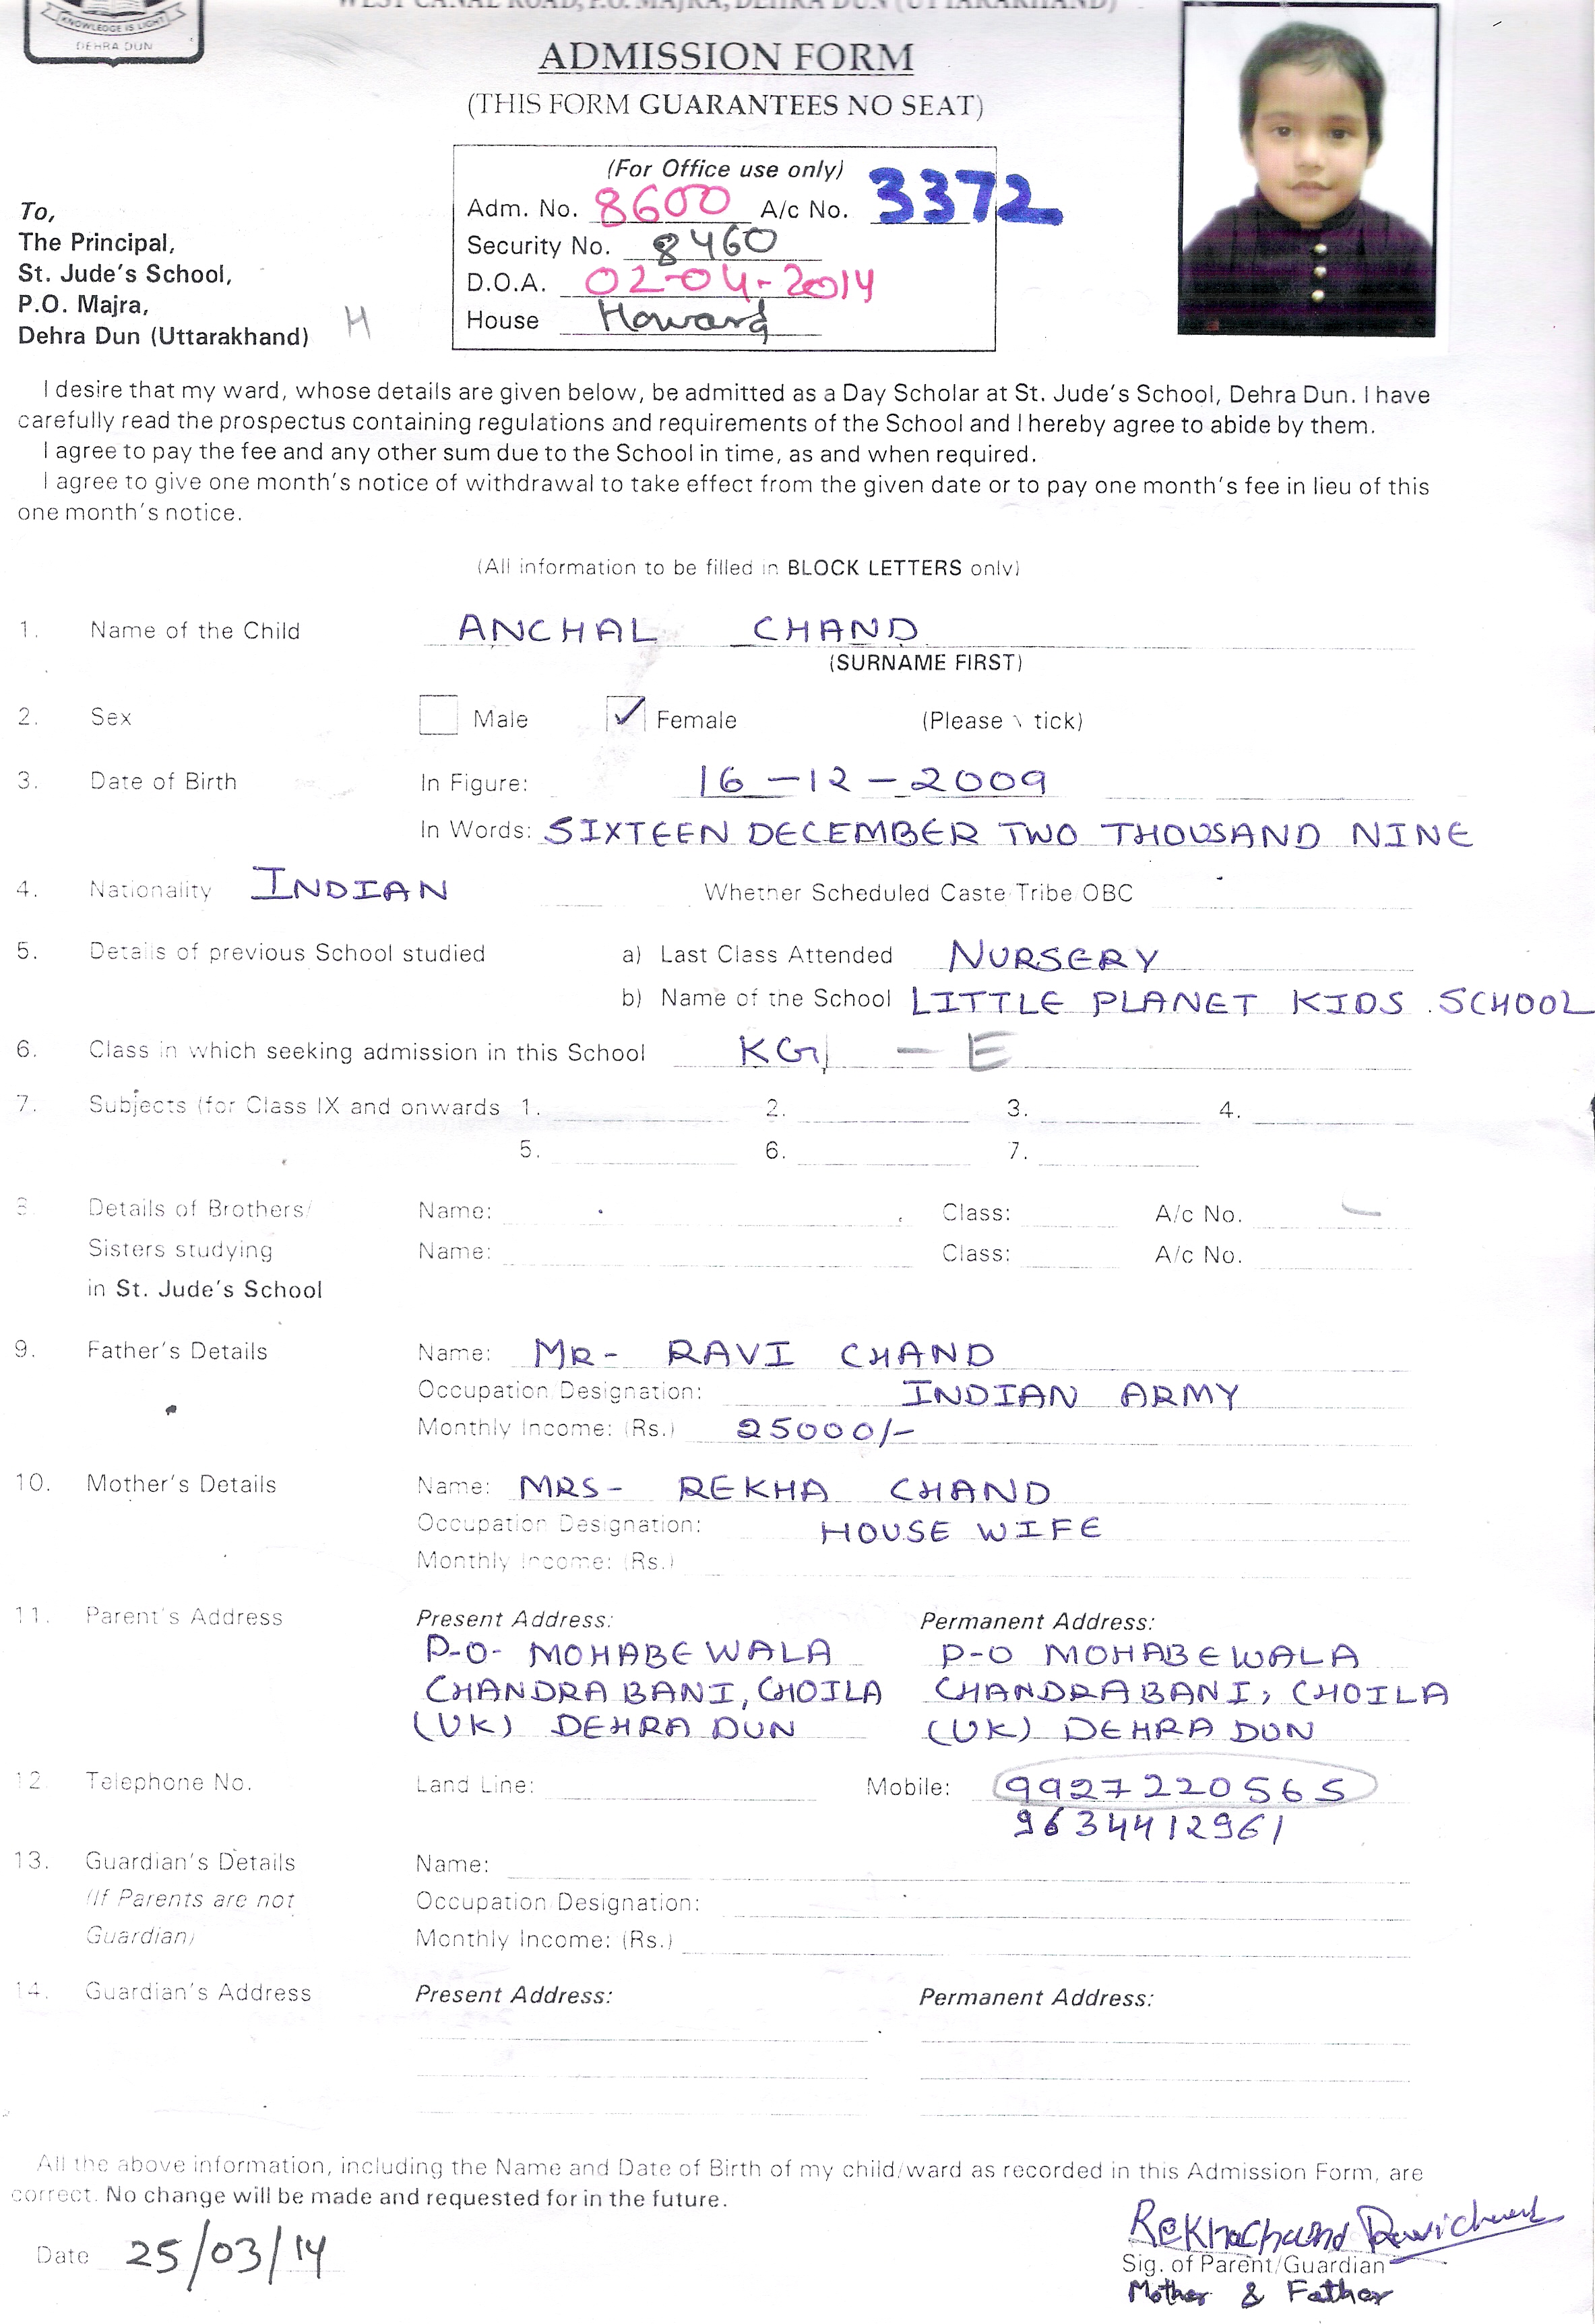 KNOWLEDGE IS LIGHT
DEHRA DUN
WEST CANAL ROAD, P.O. MAJRA, DEHRA DUN (UTTARAKHAND)
ADMISSION FORM
(THIS FORM GUARANTEES NO SEAT)
(For Office use only)
Adm. No. 8600 A/c No. 3372
Security No. 8460
D.O.A. 02-04-2014
House Howard
To,
The Principal,
St. Jude's School,
P.O. Majra,
Dehra Dun (Uttarakhand) H
I desire that my ward, whose details are given below, be admitted as a Day Scholar at St. Jude's School, Dehra Dun. I have
carefully read the prospectus containing regulations and requirements of the School and I hereby agree to abide by them.
I agree to pay the fee and any other sum due to the School in time, as and when required.
I agree to give one month's notice of withdrawal to take effect from the given date or to pay one month's fee in lieu of this
one month's notice.
(All information to be filled in BLOCK LETTERS only)
1. Name of the Child ANCHAL CHAND
(SURNAME FIRST)
2. Sex Male ✓ Female (Please \ tick)
3. Date of Birth In Figure: 16-12-2009
In Words: SIXTEEN DECEMBER TWO THOUSAND NINE
4. Nationality INDIAN Whether Scheduled Caste Tribe OBC
5. Details of previous School studied a) Last Class Attended NURSERY
b) Name of the School LITTLE PLANET KIDS SCHOOL
6. Class in which seeking admission in this School KG - E
7. Subjects (for Class IX and onwards 1. 2. 3. 4.
5. 6. 7.
8. Details of Brothers/ Name: Class: A/c No.
Sisters studying Name: Class: A/c No.
in St. Jude's School
9. Father's Details Name: MR- RAVI CHAND
Occupation Designation: INDIAN ARMY
Monthly Income: (Rs.) 25000/-
10. Mother's Details Name: MRS- REKHA CHAND
Occupation Designation: HOUSE WIFE
Monthly Income: (Rs.)
11. Parent's Address Present Address: Permanent Address:
P-O- MOHABEWALA P-O MOHABEWALA
CHANDRABANI, CHOILA CHANDRABANI, CHOILA
(UK) DEHRA DUN (UK) DEHRA DUN
12. Telephone No. Land Line: Mobile: 9927220565
9634412961
13. Guardian's Details Name:
(If Parents are not Occupation Designation:
Guardian) Monthly Income: (Rs.)
14. Guardian's Address Present Address: Permanent Address:
All the above information, including the Name and Date of Birth of my child/ward as recorded in this Admission Form, are
correct. No change will be made and requested for in the future.
Rekhachand Ravichand
Date 25/03/14 Sig. of Parent/Guardian
Mother & Father